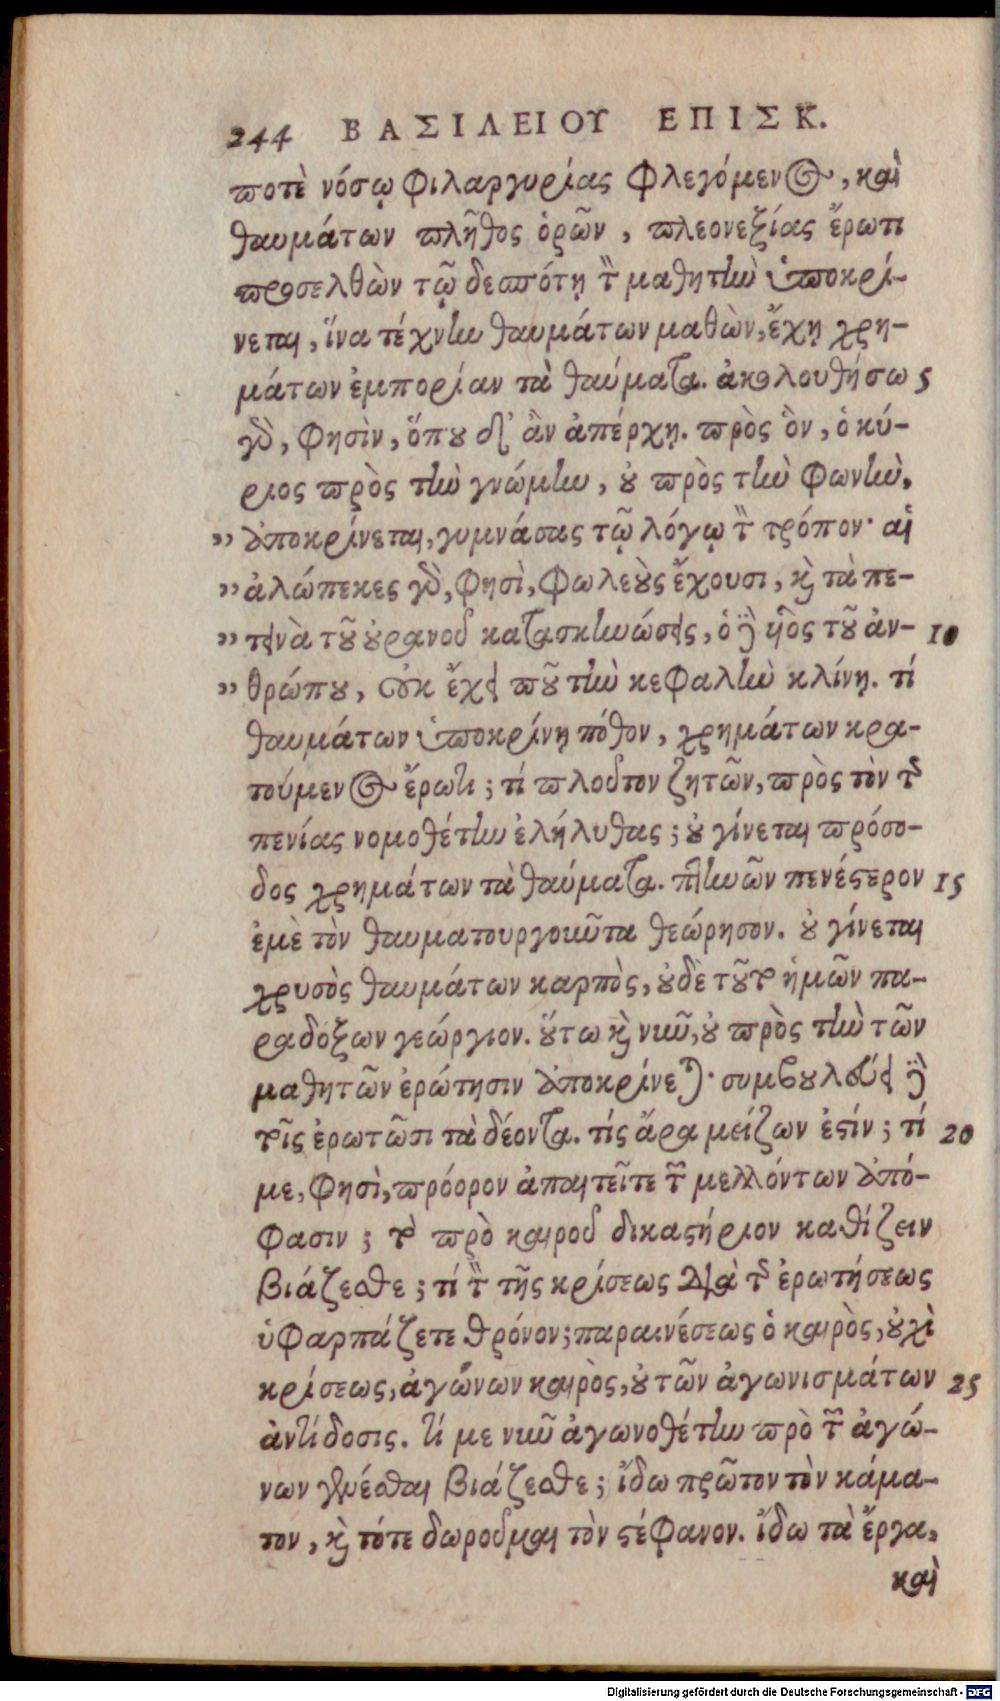 244 ΒΑΣΙΛΕΙΟΥ ΕΠΙΣΚ.
ποτὲ νόσῳ φιλαργυρίας φλεγόμενος, καὶ
θαυμάτων πλῆθος ὁρῶν, πλεονεξίας ἔρωτι
προσελθὼν τῷ δεσπότῃ τὸν μαθητὴν ὑποκρί-
νεται, ἵνα τέχνην θαυμάτων μαθὼν, ἔχῃ χρη-
μάτων ἐμπορίαν τὰ θαύματα. ἀκολουθήσω 5
γὰρ, φησὶν, ὅπου δ' ἂν ἀπέρχῃ. πρὸς ὃν, ὁ κύ-
ριος πρὸς τὴν γνώμην, οὐ πρὸς τὴν φωνὴν,
„ ἀποκρίνεται, γυμνάσας τῷ λόγῳ τὸν τρόπον· αἱ
„ ἀλώπεκες γὰρ, φησὶ, φωλεοὺς ἔχουσι, καὶ τὰ πε-
„ τεινὰ τοῦ οὐρανοῦ κατασκηνώσεις, ὁ δὲ υἱὸς τοῦ ἀν- 10
„ θρώπου, οὐκ ἔχει ποῦ τὴν κεφαλὴν κλίνῃ. τί
θαυμάτων ὑποκρίνῃ πόθον, χρημάτων κρα-
τούμενος ἔρωτι; τί πλοῦτον ζητῶν, πρὸς τὸν τῆς
πενίας νομοθέτην ἐλήλυθας; οὐ γίνεται πρόσο-
δος χρημάτων τὰ θαύματα. πτηνῶν πενέστερον 15
ἐμὲ τὸν θαυματουργοῦντα θεώρησον. οὐ γίνεται
χρυσὸς θαυμάτων καρπὸς, οὐδὲ τοῦτο ἡμῶν πα-
ραδόξων γεώργιον. οὕτω καὶ νῦν, οὐ πρὸς τὴν τῶν
μαθητῶν ἐρώτησιν ἀποκρίνεται· συμβουλεύει δὲ
τοῖς ἐρωτῶσι τὰ δέοντα. τίς ἄρα μείζων ἐστίν; τί 20
με, φησὶ, πρόορον ἀπαιτεῖτε τῶν μελλόντων ἀπό-
φασιν; τὸ πρὸ καιροῦ δικαστήριον καθίζειν
βιάζεσθε; τί τὸν τῆς κρίσεως διὰ τῆς ἐρωτήσεως
ὑφαρπάζετε θρόνον; παραινέσεως ὁ καιρὸς, οὐχὶ
κρίσεως, ἀγώνων καιρὸς, οὐ τῶν ἀγωνισμάτων 25
ἀντίδοσις. τί με νῦν ἀγωνοθέτην πρὸ τῶν ἀγώ-
νων γενέσθαι βιάζεσθε; ἴδω πρῶτον τὸν κάμα-
τον, καὶ τότε δωροῦμαι τὸν στέφανον. ἴδω τὰ ἔργα,
καὶ
Digitalisierung gefördert durch die Deutsche Forschungsgemeinschaft - DFG